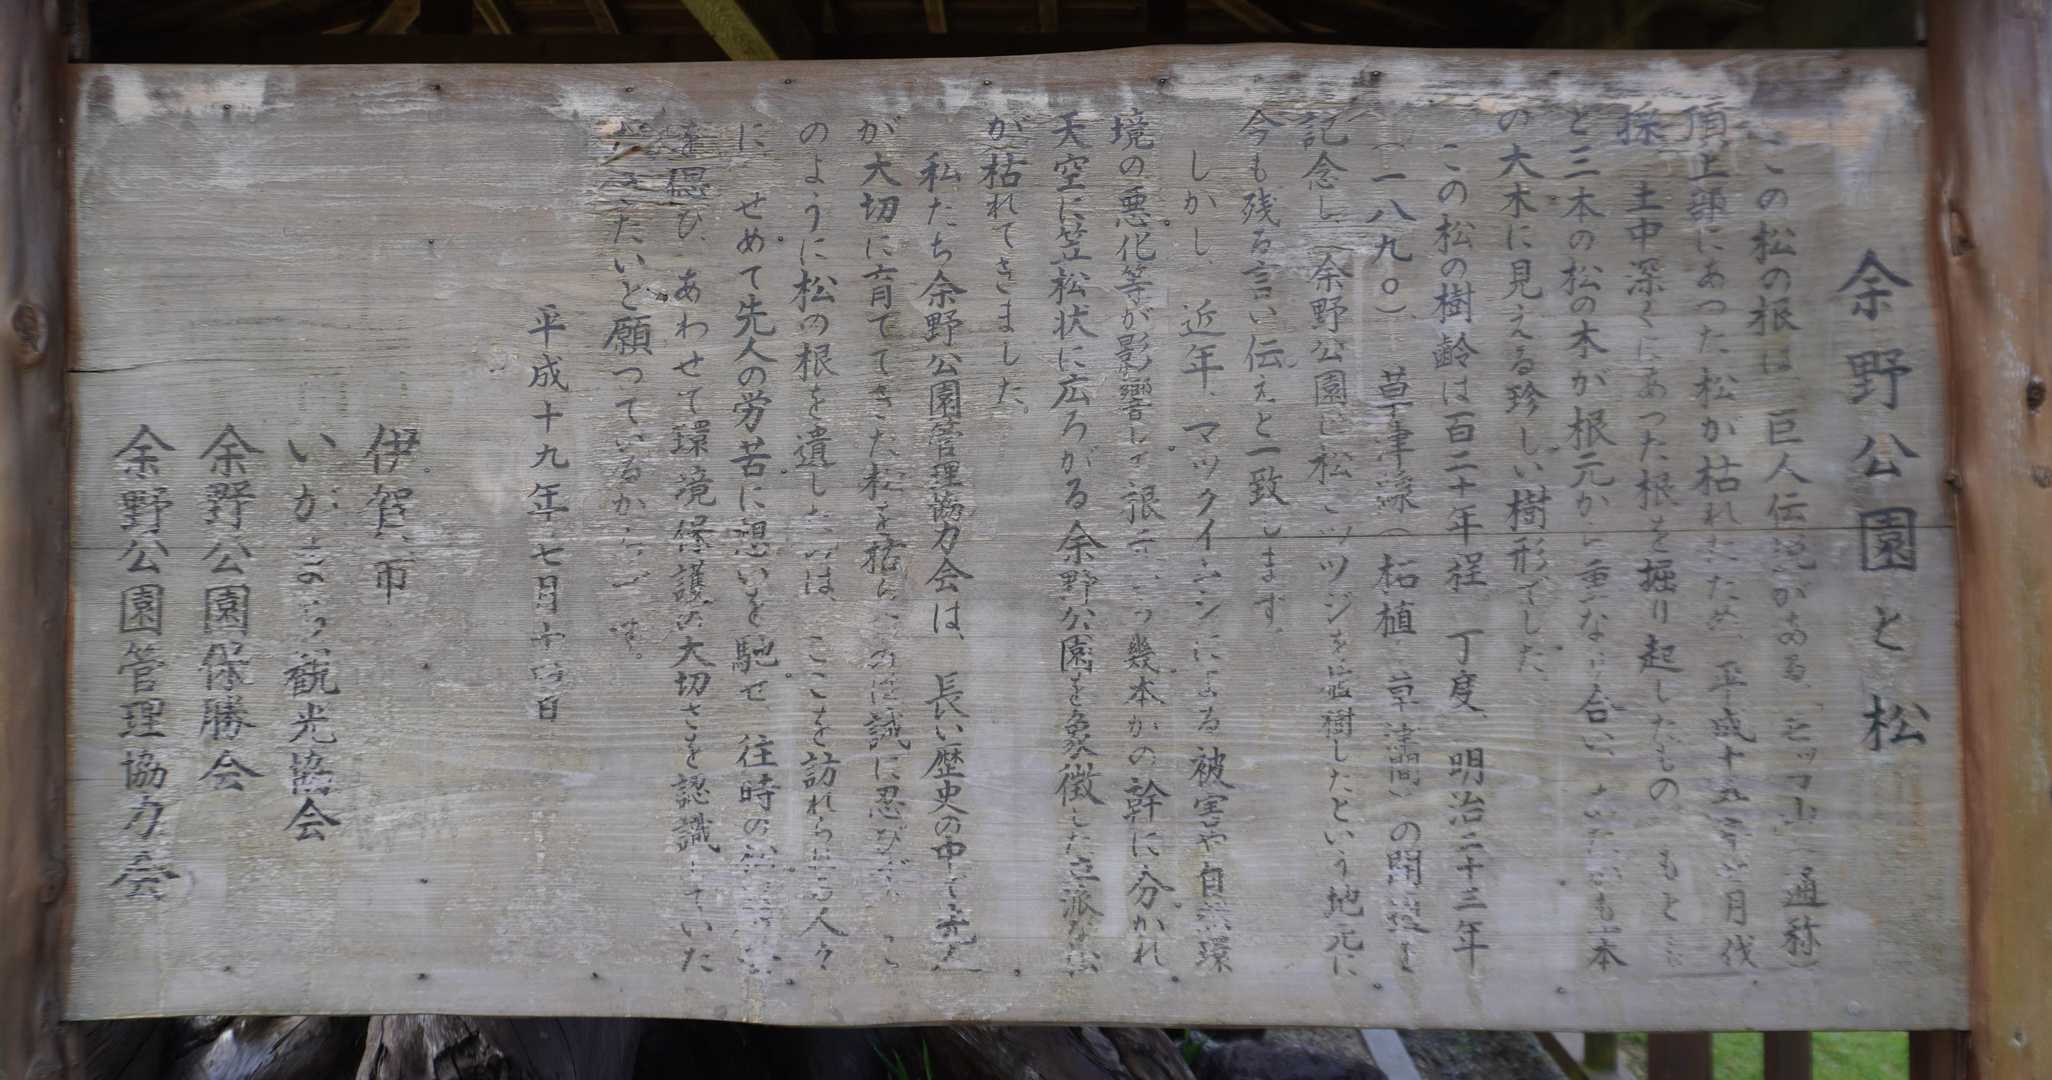 余野公園と松
この松の根は、巨人伝説がある「モッコ山」(通称)
頂上部にあった松が枯れたため、平成十五年 月伐
採 土中深くにあった根を掘り起したもの もと
と三本の松の木が根元から重なり合い も本
の大木に見える珍しい樹形でした
この松の樹齢は百二十年程 丁度、明治二十三年
(一八九〇)、草津線(柘植 草津間)の開通を
記念し、余野公園に松とツツジを 樹したという地元に
今も残る言い伝えと一致します。
しかし、近年、マックイムシによる被害や自然環
境の悪化等が影響して 根 幾本かの幹に分かれ
天空に笠松状に広ろがる余野公園を象徴した立派な松
が枯れてきました。
私たち余野公園管理協力会は、長い歴史の中で先人
が大切に育ててきた松を枯ら のは誠に忍びず、こ
のように松の根を遺したのは、ここを訪れられる人々
に せめて先人の労苦に想いを馳せ、往時の
を偲び、あわせて環境修護の大切さを認識していた
だきたいと願っているからです。
平成十九年七月 日
伊賀市
いが うえの観光協会
余野公園保勝会
余野公園管理協力会